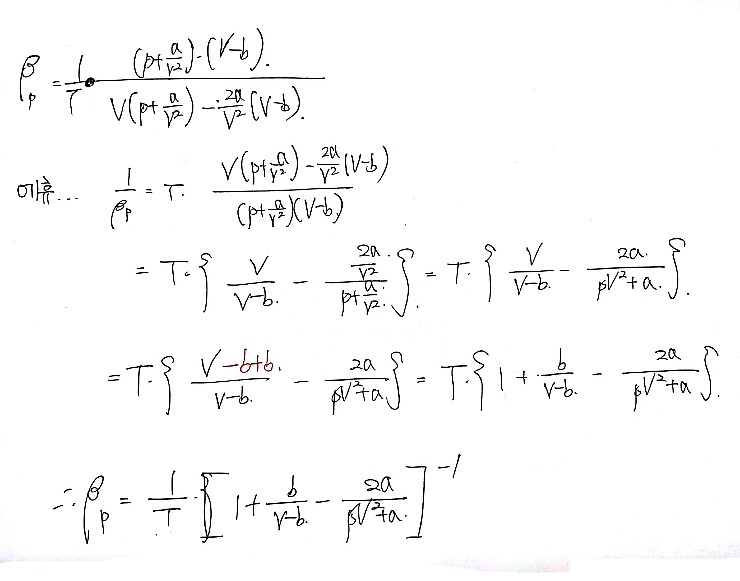 β_p = 1/T · (p+a/V²)·(V-b). / V(p+a/V²) - 2a/V²(V-b).
이휴... 1/β_p = T. V(p+a/V²) - 2a/V²(V-b) / (p+a/V²)(V-b)
= T·{ V/V-b. - 2a/V² / p+a/V². }. = T·{ V/V-b. - 2a./pV²+a. }.
= T·{ V-b+b./V-b. - 2a/pV²+a } = T·{ 1 + b/V-b. - 2a/pV²+a }.
∴ β_p = 1/T · [ 1 + b/V-b. - 2a/pV²+a. ]⁻¹